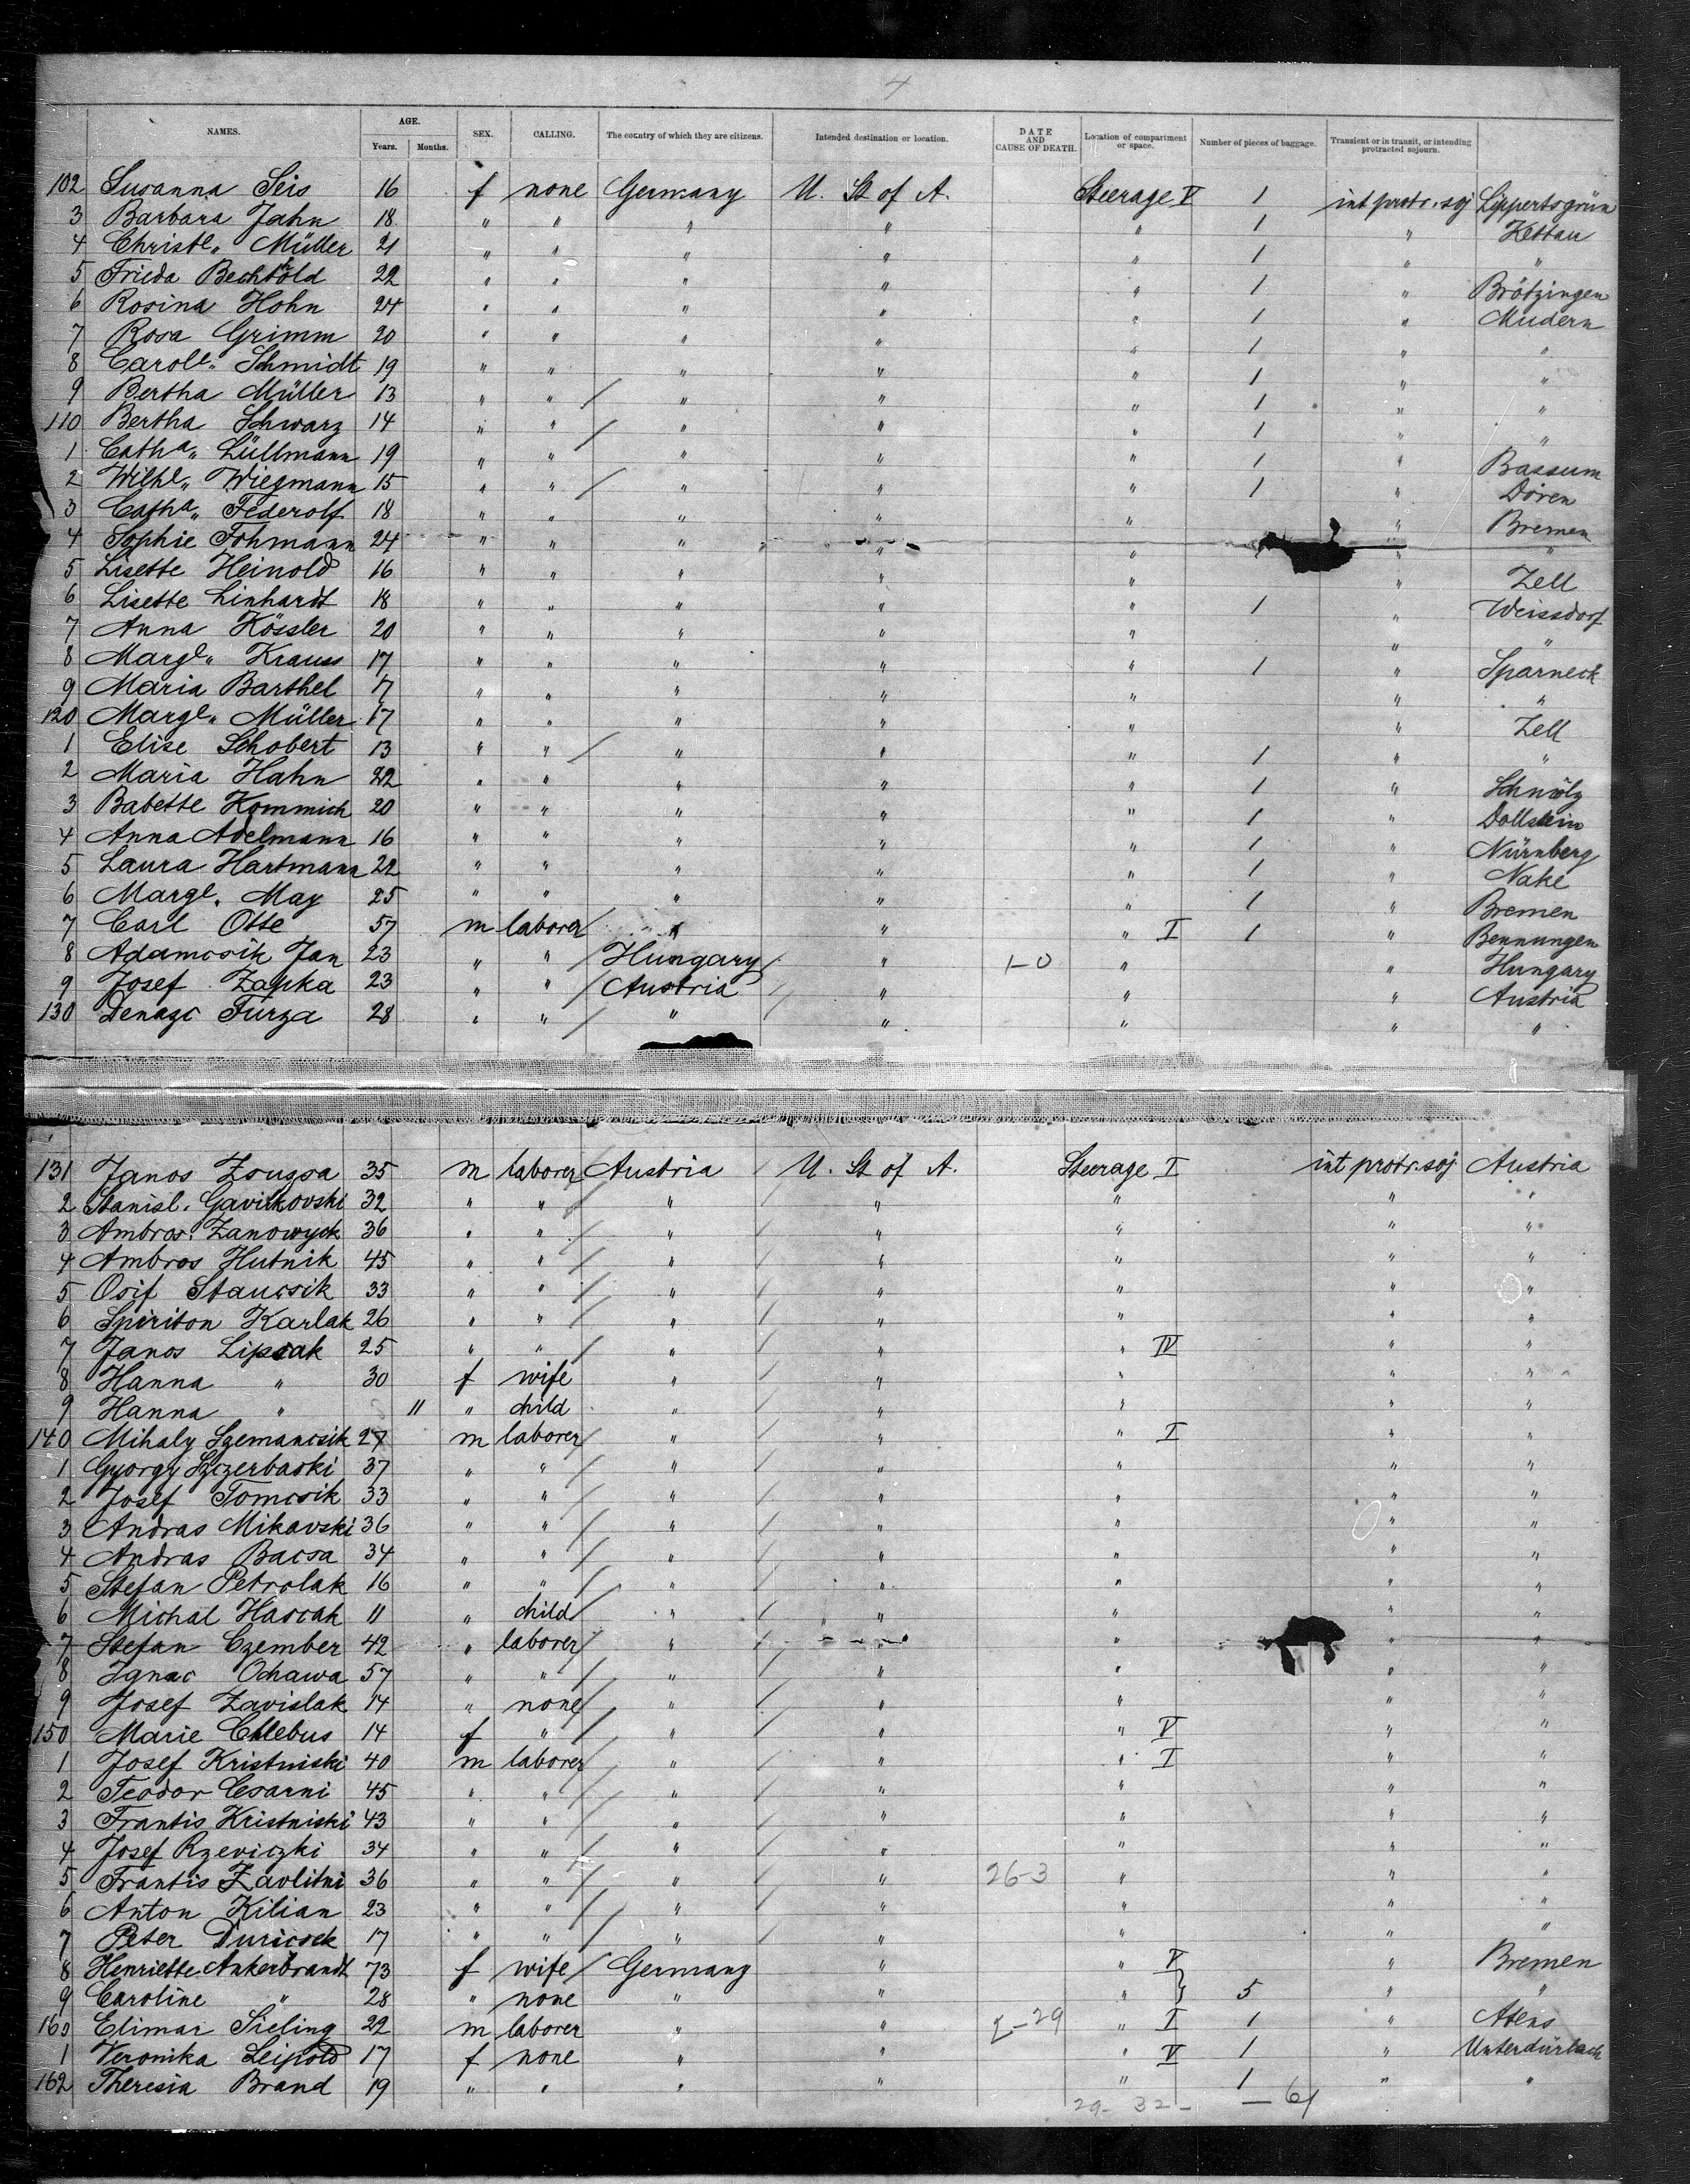 4
NAMES. AGE. Years. Months. SEX. CALLING. The country of which they are citizens. Intended destination or location. DATE AND CAUSE OF DEATH. Location of compartment or space. Number of pieces of baggage. Transient or in transit, or intending protracted sojourn.
102 Susanna Seis 16 f none Germany U. St of A. Steerage V 1 int protr. soj Lippertsgrün
3 Barbara Jahn 18 " " " " " 1 " Kettau
4 Christe,, Müller 21 " " " " " 1 " "
5 Frieda Bechtold 22 " " " " " 1 " Brötzingen
6 Rosina Hohn 24 " " " " " 1 " Mudern
7 Rosa Grimm 20 " " " " " 1 " "
8 Carole,, Schmidt 19 " " " " " 1 " "
9 Bertha Müller 13 " " / " " " 1 " "
110 Bertha Schwarz 14 " " / " " " 1 " "
1 Catha,, Lüllmann 19 " " " " " 1 " Bassum
2 Wilhe,, Wiegmann 15 " " / " " " 1 " Dören
3 Catha,, Federolf 18 " " " " " " Bremen
4 Sophie Fohmann 24 " " " " " " "
5 Lisette Heinold 16 " " " " " " Zell
6 Lisette Linhardt 18 " " " " " 1 " Weissdorf
7 Anna Kössler 20 " " " " " " "
8 Marge,, Krauss 17 " " " " " 1 " Sparneck
9 Maria Barthel 17 " " " " " " "
120 Marge,, Müller 17 " " " " " " Zell
1 Elise Schobert 13 " " / " " " 1 " "
2 Maria Hahn 22 " " " " " 1 "
3 Babette Kommich 20 " " " " " 1 " Dollstein
4 Anna Adelmann 16 " " " " " 1 " Nürnberg
5 Laura Hartmann 22 " " " " " 1 " Nake
6 Marge. May 25 " " " " " 1 " Bremen
7 Carl Otte 57 m laborer " " " I 1 " Bennungen
8 Adamcsik Jan 23 " " / Hungary / " 1-0 " " Hungary
9 Josef Zapka 23 " " / Austria / " " " Austria
130 Denazc Furza 28 " " / " / " " " "
131 Janos Zsugsa 35 m laborer Austria / U. St of A. Steerage I int protr. soj Austria
2 Stanisl. Gavikovski 32 " " / " / " " " "
3 Ambros. Zanowyck 36 " " / " / " " " "
4 Ambros Hutnik 45 " " / " / " " " "
5 Osif Staucsik 33 " " / " / " " " "
6 Spiriton Karlak 26 " " / " / " " " "
7 Janos Lipcak 25 " " / " / " " IV " "
8 Hanna " 30 f wife " / " " " "
9 Hanna " 11 " child " / " " " "
140 Mihaly Szemancsik 27 m laborer / " / " " I " "
1 Gyorgy Szczerbaski 37 " " / " / " " " "
2 Josef Tomcsik 33 " " / " / " " " "
3 Andras Mikavski 36 " " / " / " " " "
4 Andras Bacsa 34 " " / " / " " " "
5 Stefan Petrolak 16 " " / " / " " " "
6 Michal Hascak 11 " child / " / " " " "
7 Stefan Czember 42 " laborer / " / " " " "
8 Ignac Ochawa 57 " " / " / " " " "
9 Josef Zavislak 14 " none / " / " " " "
150 Marie Chlebus 14 f " / " / " " V " "
1 Josef Kristniski 40 m laborer / " / " " I " "
2 Teodor Csarni 45 " " / " / " " " "
3 Frantis Kristniski 43 " " / " / " " " "
4 Josef Rzeviczki 34 " " / " / " " " "
5 Frantis Zavlitni 36 " " / " / " 26-3 " " "
6 Anton Kilian 23 " " / " / " " " "
7 Peter Duricsek 17 " " / " / " " " "
8 Henriette Ankerbrandt 73 f wife / Germany " " V " Bremen
9 Caroline " 28 " none " " " } 5 " "
160 Elimar Sieling 22 m laborer " " " I 1 " Atens
1 Veronika Leipold 17 f none " " " V 1 " Unterdürlach
162 Theresia Brand 19 " " " " " 1 " "
29- 32- - 61